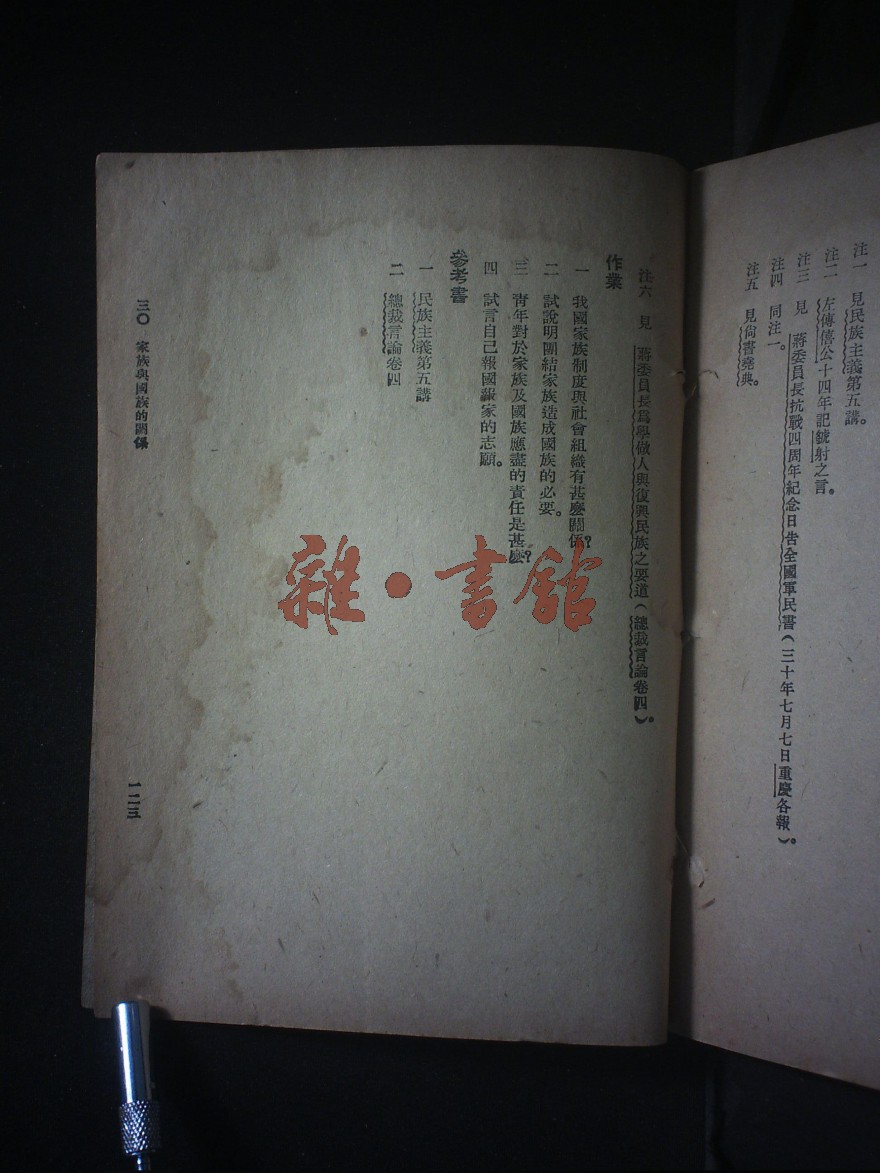 注一　見民族主義第五講。
注二　左傳僖公十四年記虢射之言。
注三　見　蔣委員長抗戰四周年紀念日告全國軍民書（三十年七月七日重慶各報）。
注四　同注一。
注五　見尚書堯典。
注六　見　蔣委員長爲學做人與復興民族之要道（總裁言論卷四）。
作業
一　我國家族制度與社會組織有甚麼關係？
二　試說明團結家族造成國族的必要。
三　靑年對於家族及國族應盡的責任是甚麼？
四　試言自己報國顯家的志願。
參考書
一　民族主義第五講
二　總裁言論卷四
三〇　家族與國族的關係
一二三
雜・書館